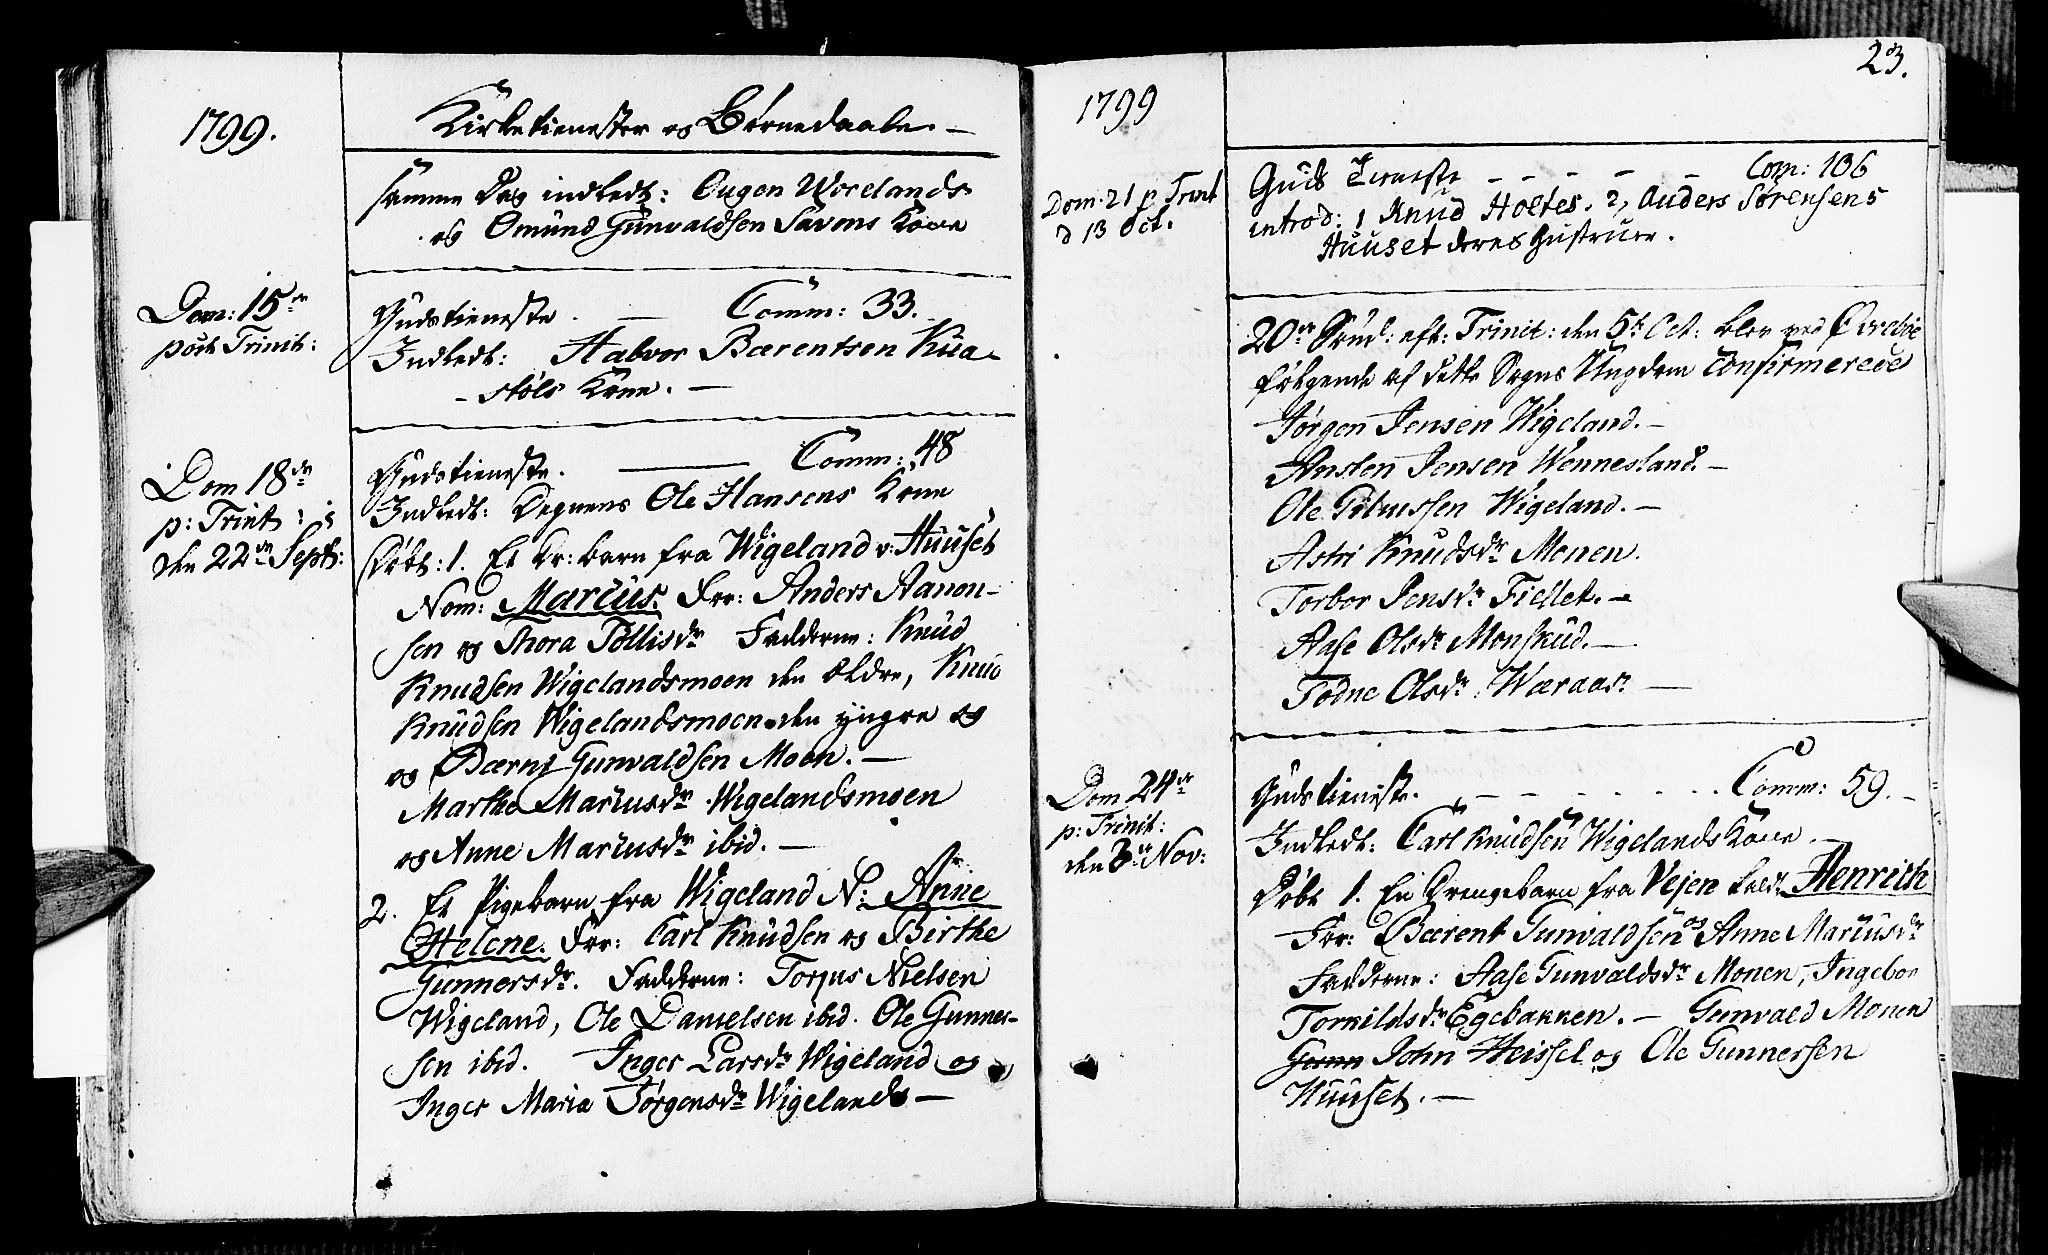 1799.
Kirketienester og Børnedaabe. —
samme Dag indledt: Ougen Worelands
og Omund Gunvaldsen Savens Kone
Dom: 15de
post Trinit:
Gudstieneste. — Comm: 33.
Indledt: Halvor Bærentsen Kua-
-støls Kone. —
Dom 18de
p: Trinit:
den 22de Sept:
Gudstieneste. — Comm: 48
Indledt: Degnens Ole Hansens Kone
Døbt: 1. Et Dr: barn fra Wigeland v: Huuset
Nom: Marcus. For: Anders Aanon-
sen og Thora Tollisdr Fadderne: Knud
Knudsen Wigelandsmoen den Ældre, Knud
Knudsen Wigelandsmoen den yngre og
og Bærnt Gunvaldsen Moen. —
Marthe Marcusdr Wigelandsmoen
og Anne Marcusdr ibid. —
2. Et Pigebarn fra Wigeland N: Anne
Helene. For: Carl Knudsen og Birthe
Gunnersdr. Fadderne: Torjus Nielsen
Wigeland, Ole Danielsen ibid. Ole Gunner-
sen ibid. Inger Larsdr Wigeland og
Inger Maria Jørgensdr Wigelands —
23.
1799
Dom. 21 p Trinit
d 13 Oct.
Guds Tieneste - - - - - Com: 106
introd: 1 Knud Holtes. 2, Anders Sørensens
Huuset deres Hustruer.
20de Sønd: eft: Trinit: den 5te Oct: blev ved Øvrebøe
følgende af dette Sogns Ungdom Confirmerede
Jørgen Jensen Wigeland. —
Ansten Jensen Wennesland. —
Ole Gitmssen Wigeland. —
Astri Knudsdr Monen.
Torbor Jensdr Fiellet. —
Aase Olsdr Monskud. —
Todne Olsdr Wæraas. —
Dom 24de
p: Trinit:
den 3de Nov:
Gudstieneste. - - - - Comm: 59. —
Indledt: Carl Knudsen Wigelands Kone. —
Døbt 1. En Drengebarn fra Vejen kaldt Henrich
For: Bærent Gunvaldsen og Anne Marcusdr
Fadderne: Aase Gunvaldsdr Monen, Ingebor
Tornildsdr Egebakken. — Gunvald Monen
John Heissel og Ole Gunnersen
Huuset. —